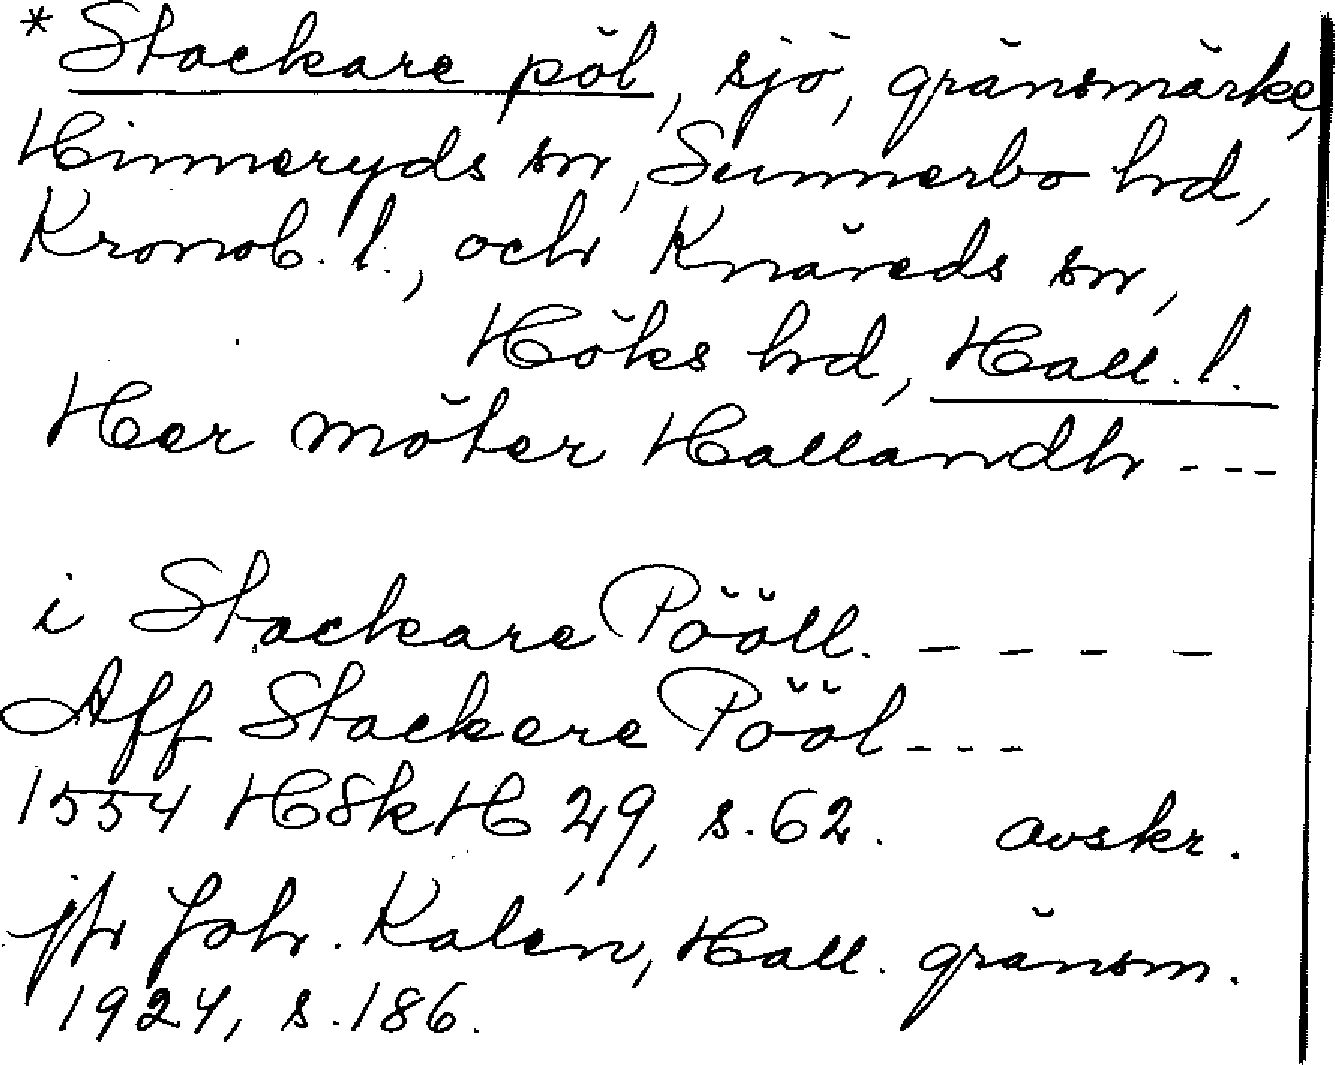 *Stackare pöl, sjö, gränsmärke,
Hinneryds sn, Sunnerbo hd,
Kronob. l., och Knäreds sn,
Höks hd, Hall. l.
Her möter Hallandh ---
i Stackare Pööll. - - - -
Aff Stackere Pööl ---
1554 HSkH 29, s. 62. avskr.
jfr Joh. Kalén, Hall. gränsm.
1924, s. 186.